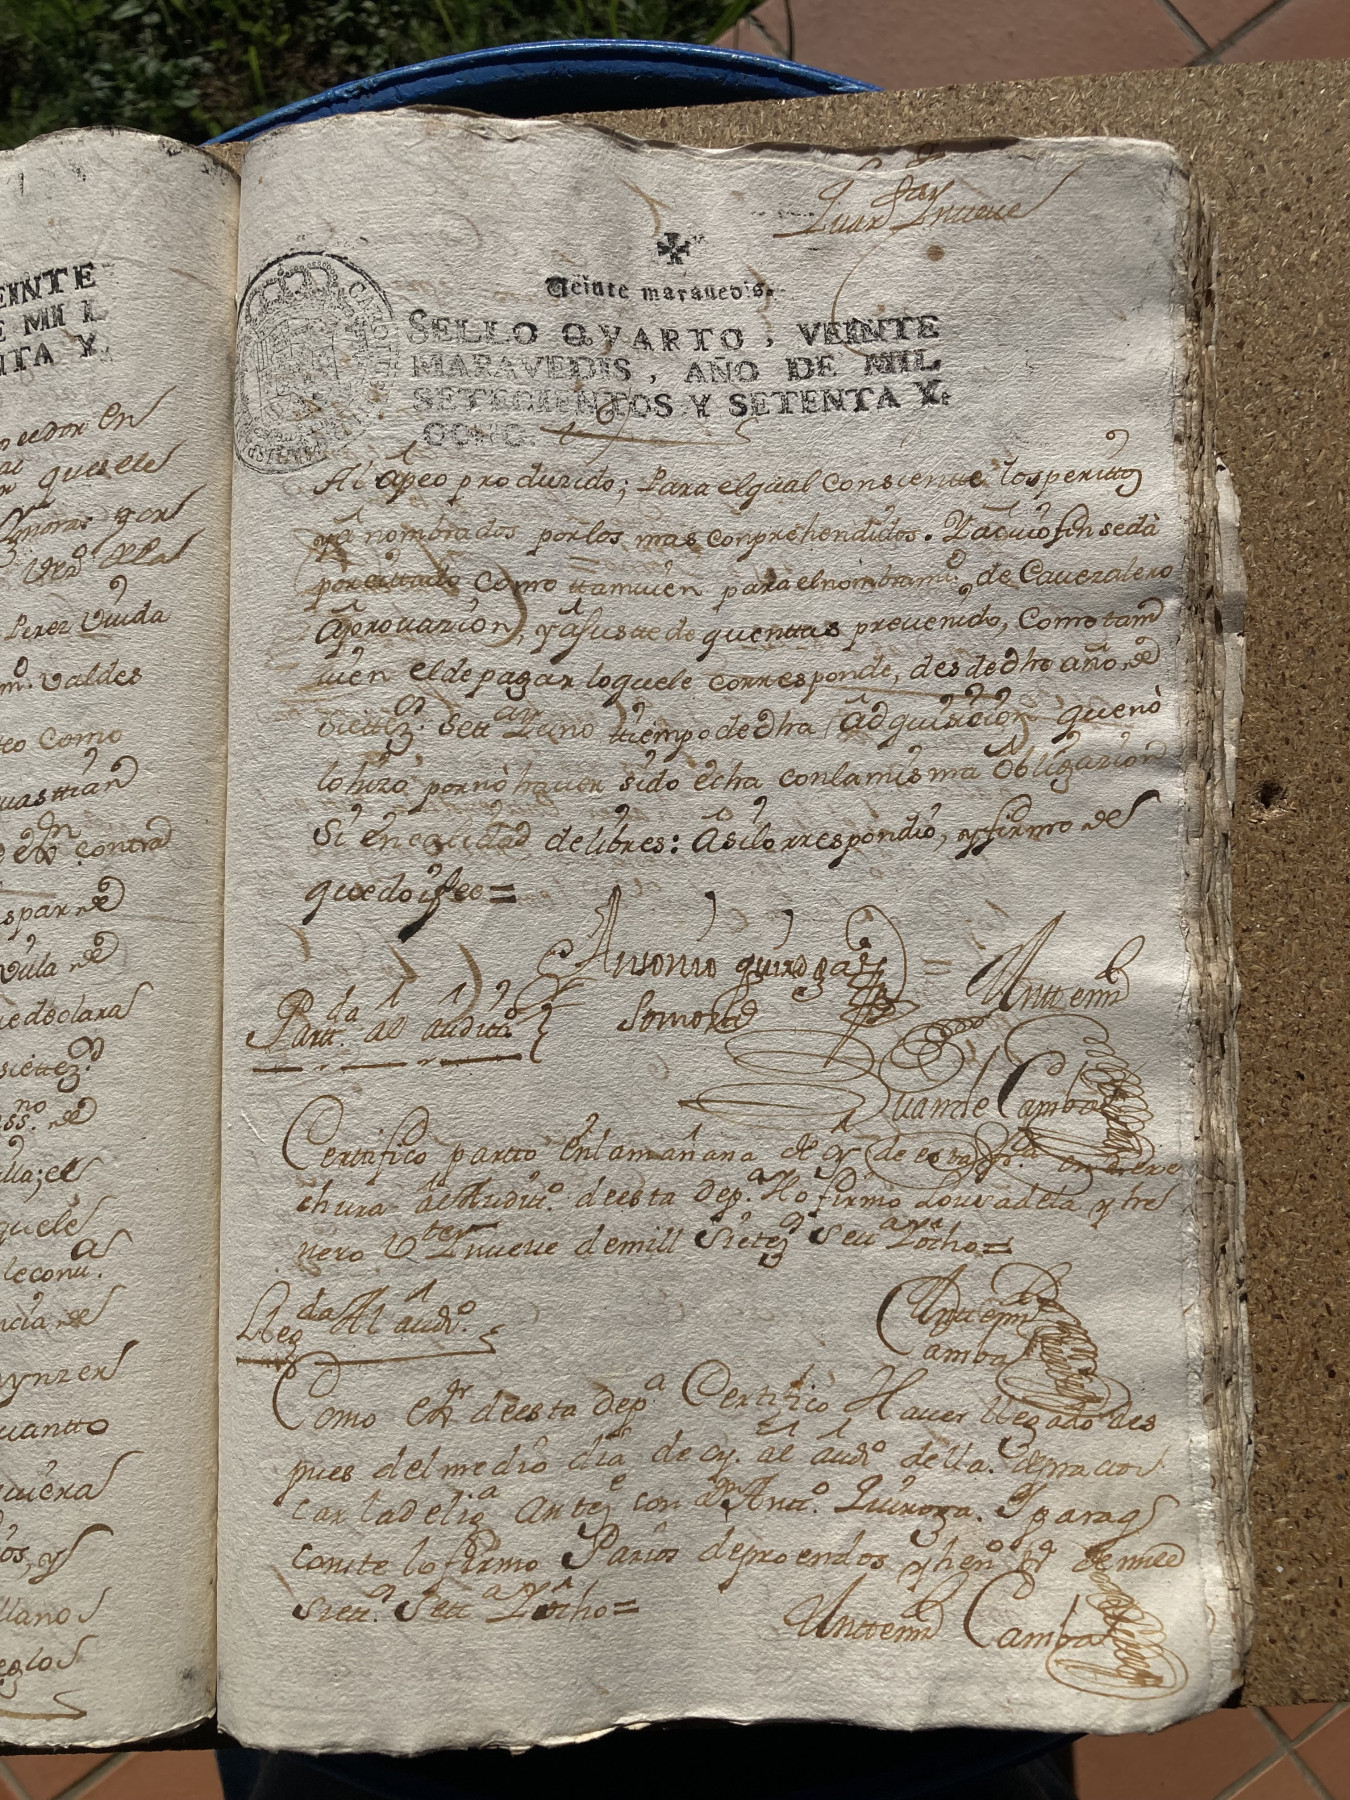 Quar.ta y nueve
Veinte maravedis.
SELLO QVARTO, VEINTE
MARAVEDIS, AÑO DE MIL
SETECIENTOS Y SETENTA Y
OCHO.
Al apeo produzido; Para elqual consiente losperittos
ya nombrados porlos mas conprehendidos. Y acuio fin sedà
por cittado como ttamuien para el nombram.to de Cauezalero
Aprouazion, y ajustte de quenttas preuenido, Como tam
uien elde pagar loquele corresponde, desdedho año de
siettez.s sett.ay uno ttiempo dedha adquisicion quenò
lo hizo por nò hauer sido echa conlamisma Obligazion
Si en calidad de libres: Asilo rrespondio, y firmo de
quedoifee=
Antonio quiroga
Somoza
= Antte mi
Juan de Camba
Partt.da al auditt.o
Certifico partto en la mañana de oy de esta fha en dere
chura al Audit.o deesta dep.a Yo firmo Louradela y he
nero Vte y nueve demill Siettez.s Sett.a y ocho=
Lleg.da Al audi.o
Antte mi
Camba
Como ess.no deesta dep.a Certifico Hauer llegado des
pues del medio dia de oy. al audi.o della.
con d.n Antt.o Quiroga. Y para q
conste lo firmo Parios deproendos y hen.o
Siett.s Sett.a y ocho=
Antte mi Camba
EINTE
E MIL
NTA Y
queselle
Perez Viuda
m. Valdes
teo como
uasttian
contra
spar de
uila de
uedeclara
siettez.s
ss.no de
lla; el
quele
leconu.a
ncia de
uantto
uiera
os, y
llano
eglos